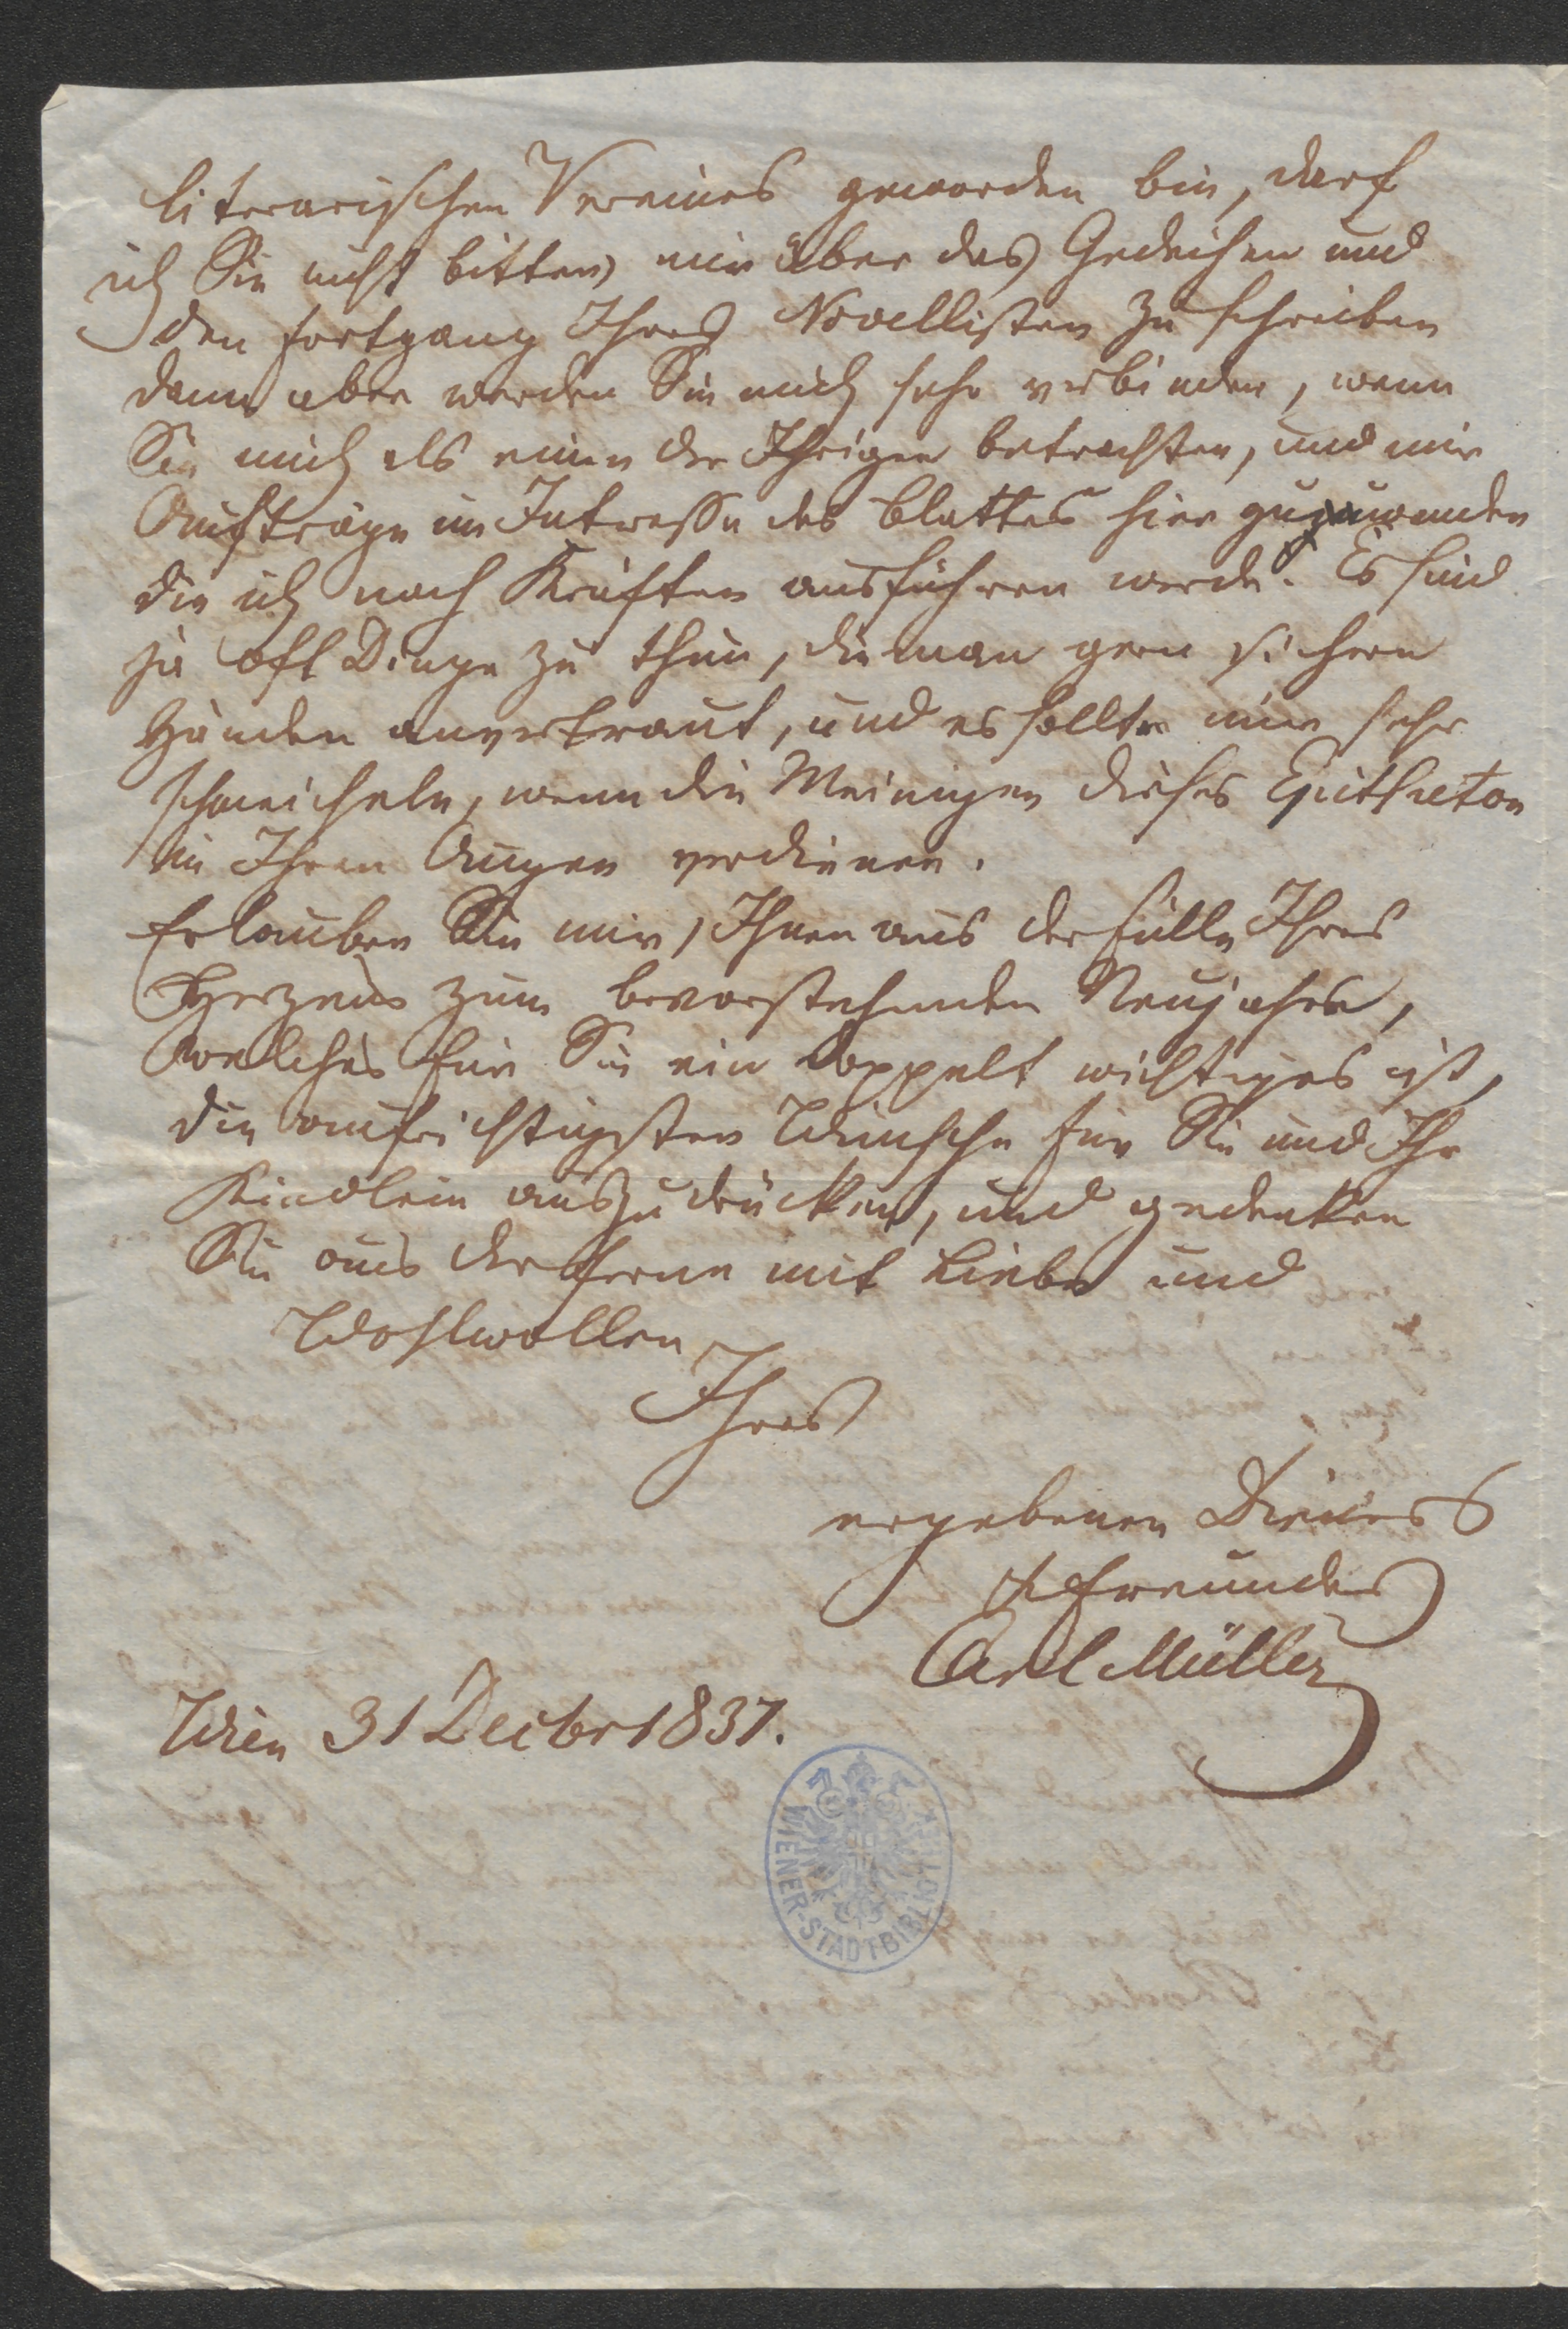 literarischen Vereines geworden bin, darf
ich Sie nicht bitten mir über das Gedeihen und
den Fortgang Ihres Novellisten zu schreiben
dann aber werden Sie mich sehr verbinden, wenn
Sie mich als einen der Ihrigen betrachten, und mir
Aufträge im Intresse des Blattes hier zuzuwenden
die ich nach Kräften ausführen werde. Es sind
ja oft Dinge zu thun, die man gern sichern
Händen anvertraut, und es sollte mir sehr
schmeicheln, wenn die Meinigen dieses Epitheton
in Ihren Augen verdienen.
Erlauben Sie mir, Ihnen aus der Fülle Ihres
Herzens zum bevorstehenden Neujahre,
welches für Sie ein doppelt wichtiges ist,
die aufrichtigsten Wünsche für Sie und Ihr
Kindlein auszudrücken, und gedenken
Sie aus der Ferne mit Liebe und
Wohlwollen
Ihres
ergebenen Dieners
& Freundes
Carl Müller
Wien 31 Decbr 1837.
WIENER-STADTBIBLIOTHEK